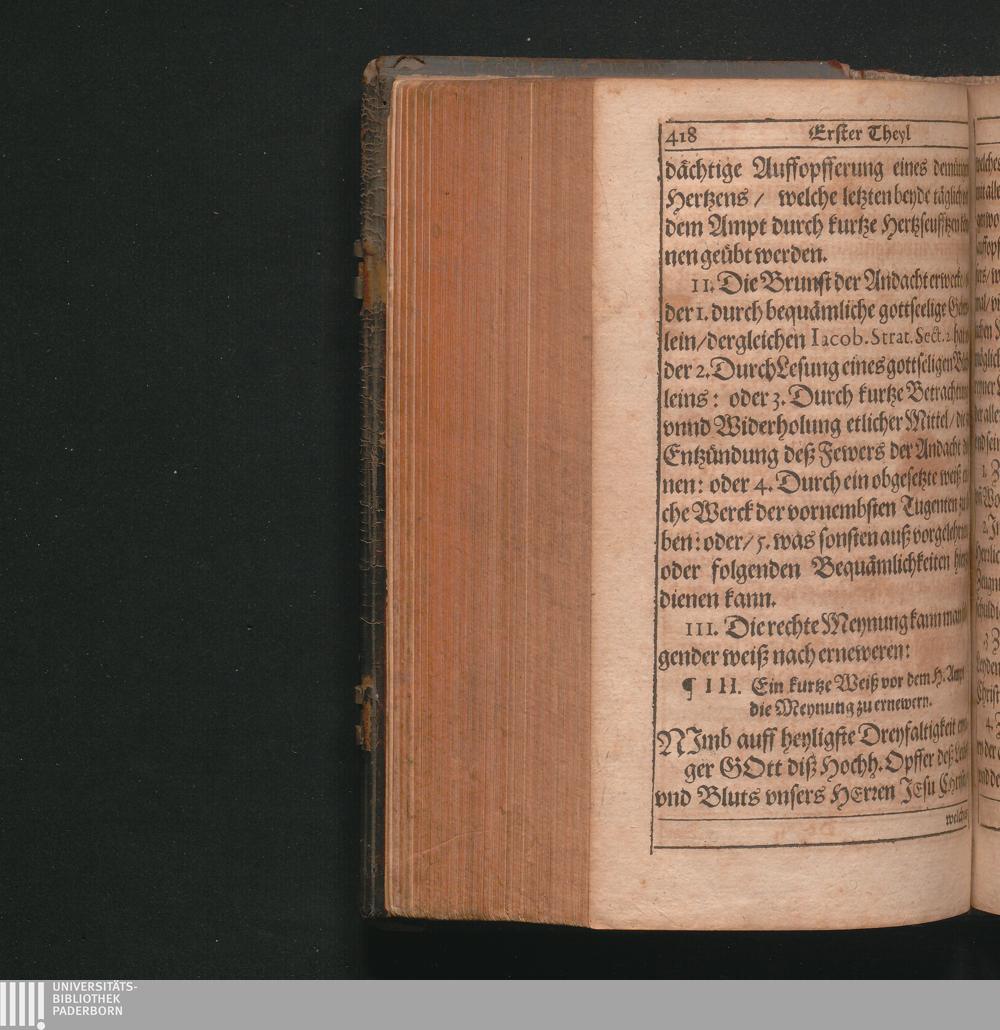 418 Erster Theyl
dächtige Auffopfferung eines
Hertzens / welche letzten beyde
dem Ampt durch kurtze
nen geübt werden.
II. Die Brunst der Andacht
der 1. durch bequämliche gottseelige
lein/dergleichen Iacob. Strat. Sect. 2.
der 2. Durch Lesung eines gottseligen
leins: oder 3. Durch kurtze
vnnd Widerholung etlicher Mittel /
Entzündung deß Fewers der Andacht
nen: oder 4. Durch ein obgesetzte weiß
che Werck der vornembsten Tugenten
ben: oder/ 5. was sonsten auß
oder folgenden Bequämlichkeiten
dienen kann.
III. Die rechte Meynung kann man
gender weiß nach erneweren:
¶ III. Ein kurtze Weiß vor dem H. Ampt
die Meynung zu ernewern.
NImb auff heyligste Dreyfaltigkeit
ger GOtt diß Hochh. Opffer deß
vnd Bluts vnsers HErren JEsu
UNIVERSITÄTS-
BIBLIOTHEK
PADERBORN